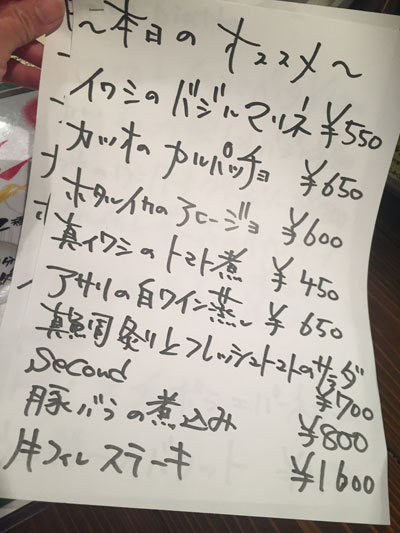 ～本日のオススメ～
イワシのバジルマリネ ¥550
カツオのカルパッチョ ¥650
ホタルイカのアヒージョ ¥600
真イワシのトマト煮 ¥450
アサリの白ワイン蒸し ¥650
炙りとフレッシュトマトのサラダ
¥700
Second
豚バラの煮込み ¥800
牛フィレステーキ ¥1600